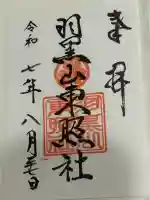 奉拝
羽黒山東照社
令和七年八月三日